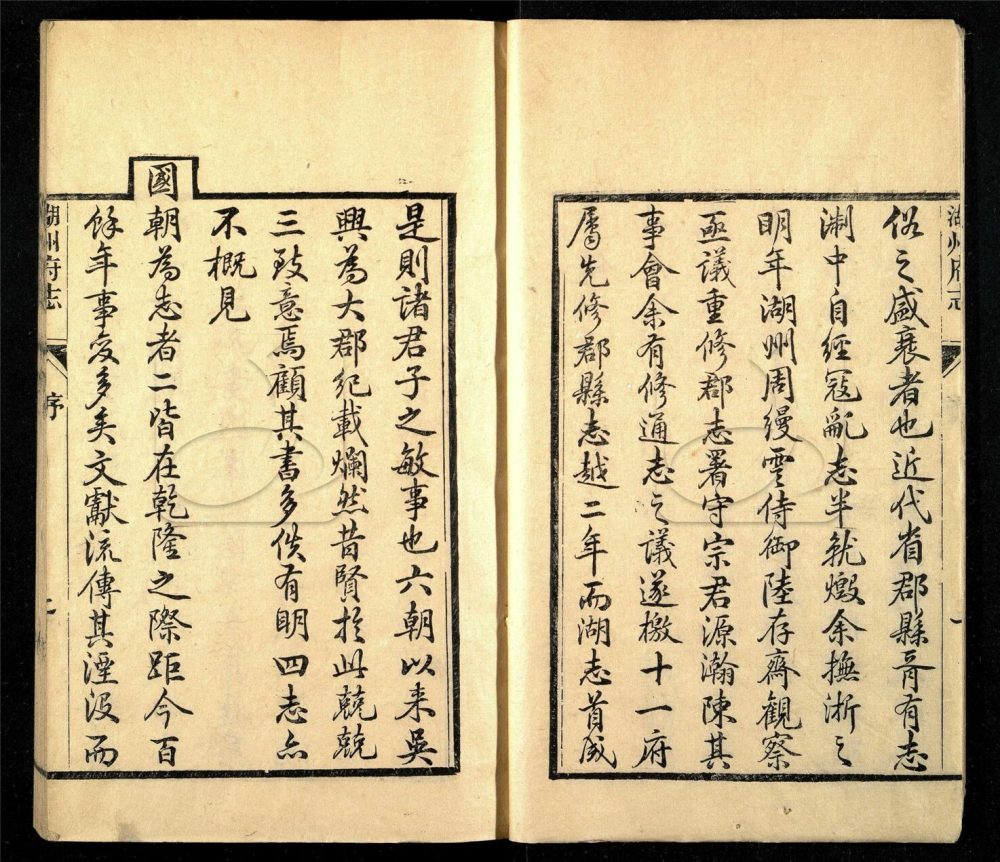 湖州府志
俗之盛衰者也近代省郡縣胥有志
淛中自經寇亂志半就燬余撫浙之
明年湖州周縵雲侍御陸存齋觀察
亟議重修郡志署守宗君源瀚陳其
事會余有修通志之議遂檄十一府
屬先修郡縣志越二年而湖志首成
是則諸君子之敏事也六朝以来吳
興為大郡紀載爛然昔賢於此兢兢
三致意焉顧其書多佚有明四志亦
不概見
國朝為志者二皆在乾隆之際距今百
餘年事変多矣文獻流傳其湮没而
湖州府志
序